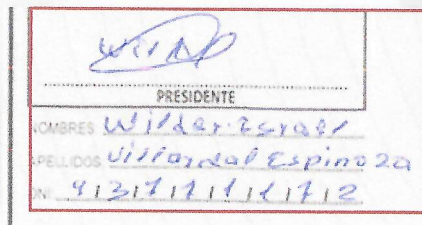 PRESIDENTE
NOMBRES Wilder Israel
APELLIDOS Villareal Espinoza
DNI